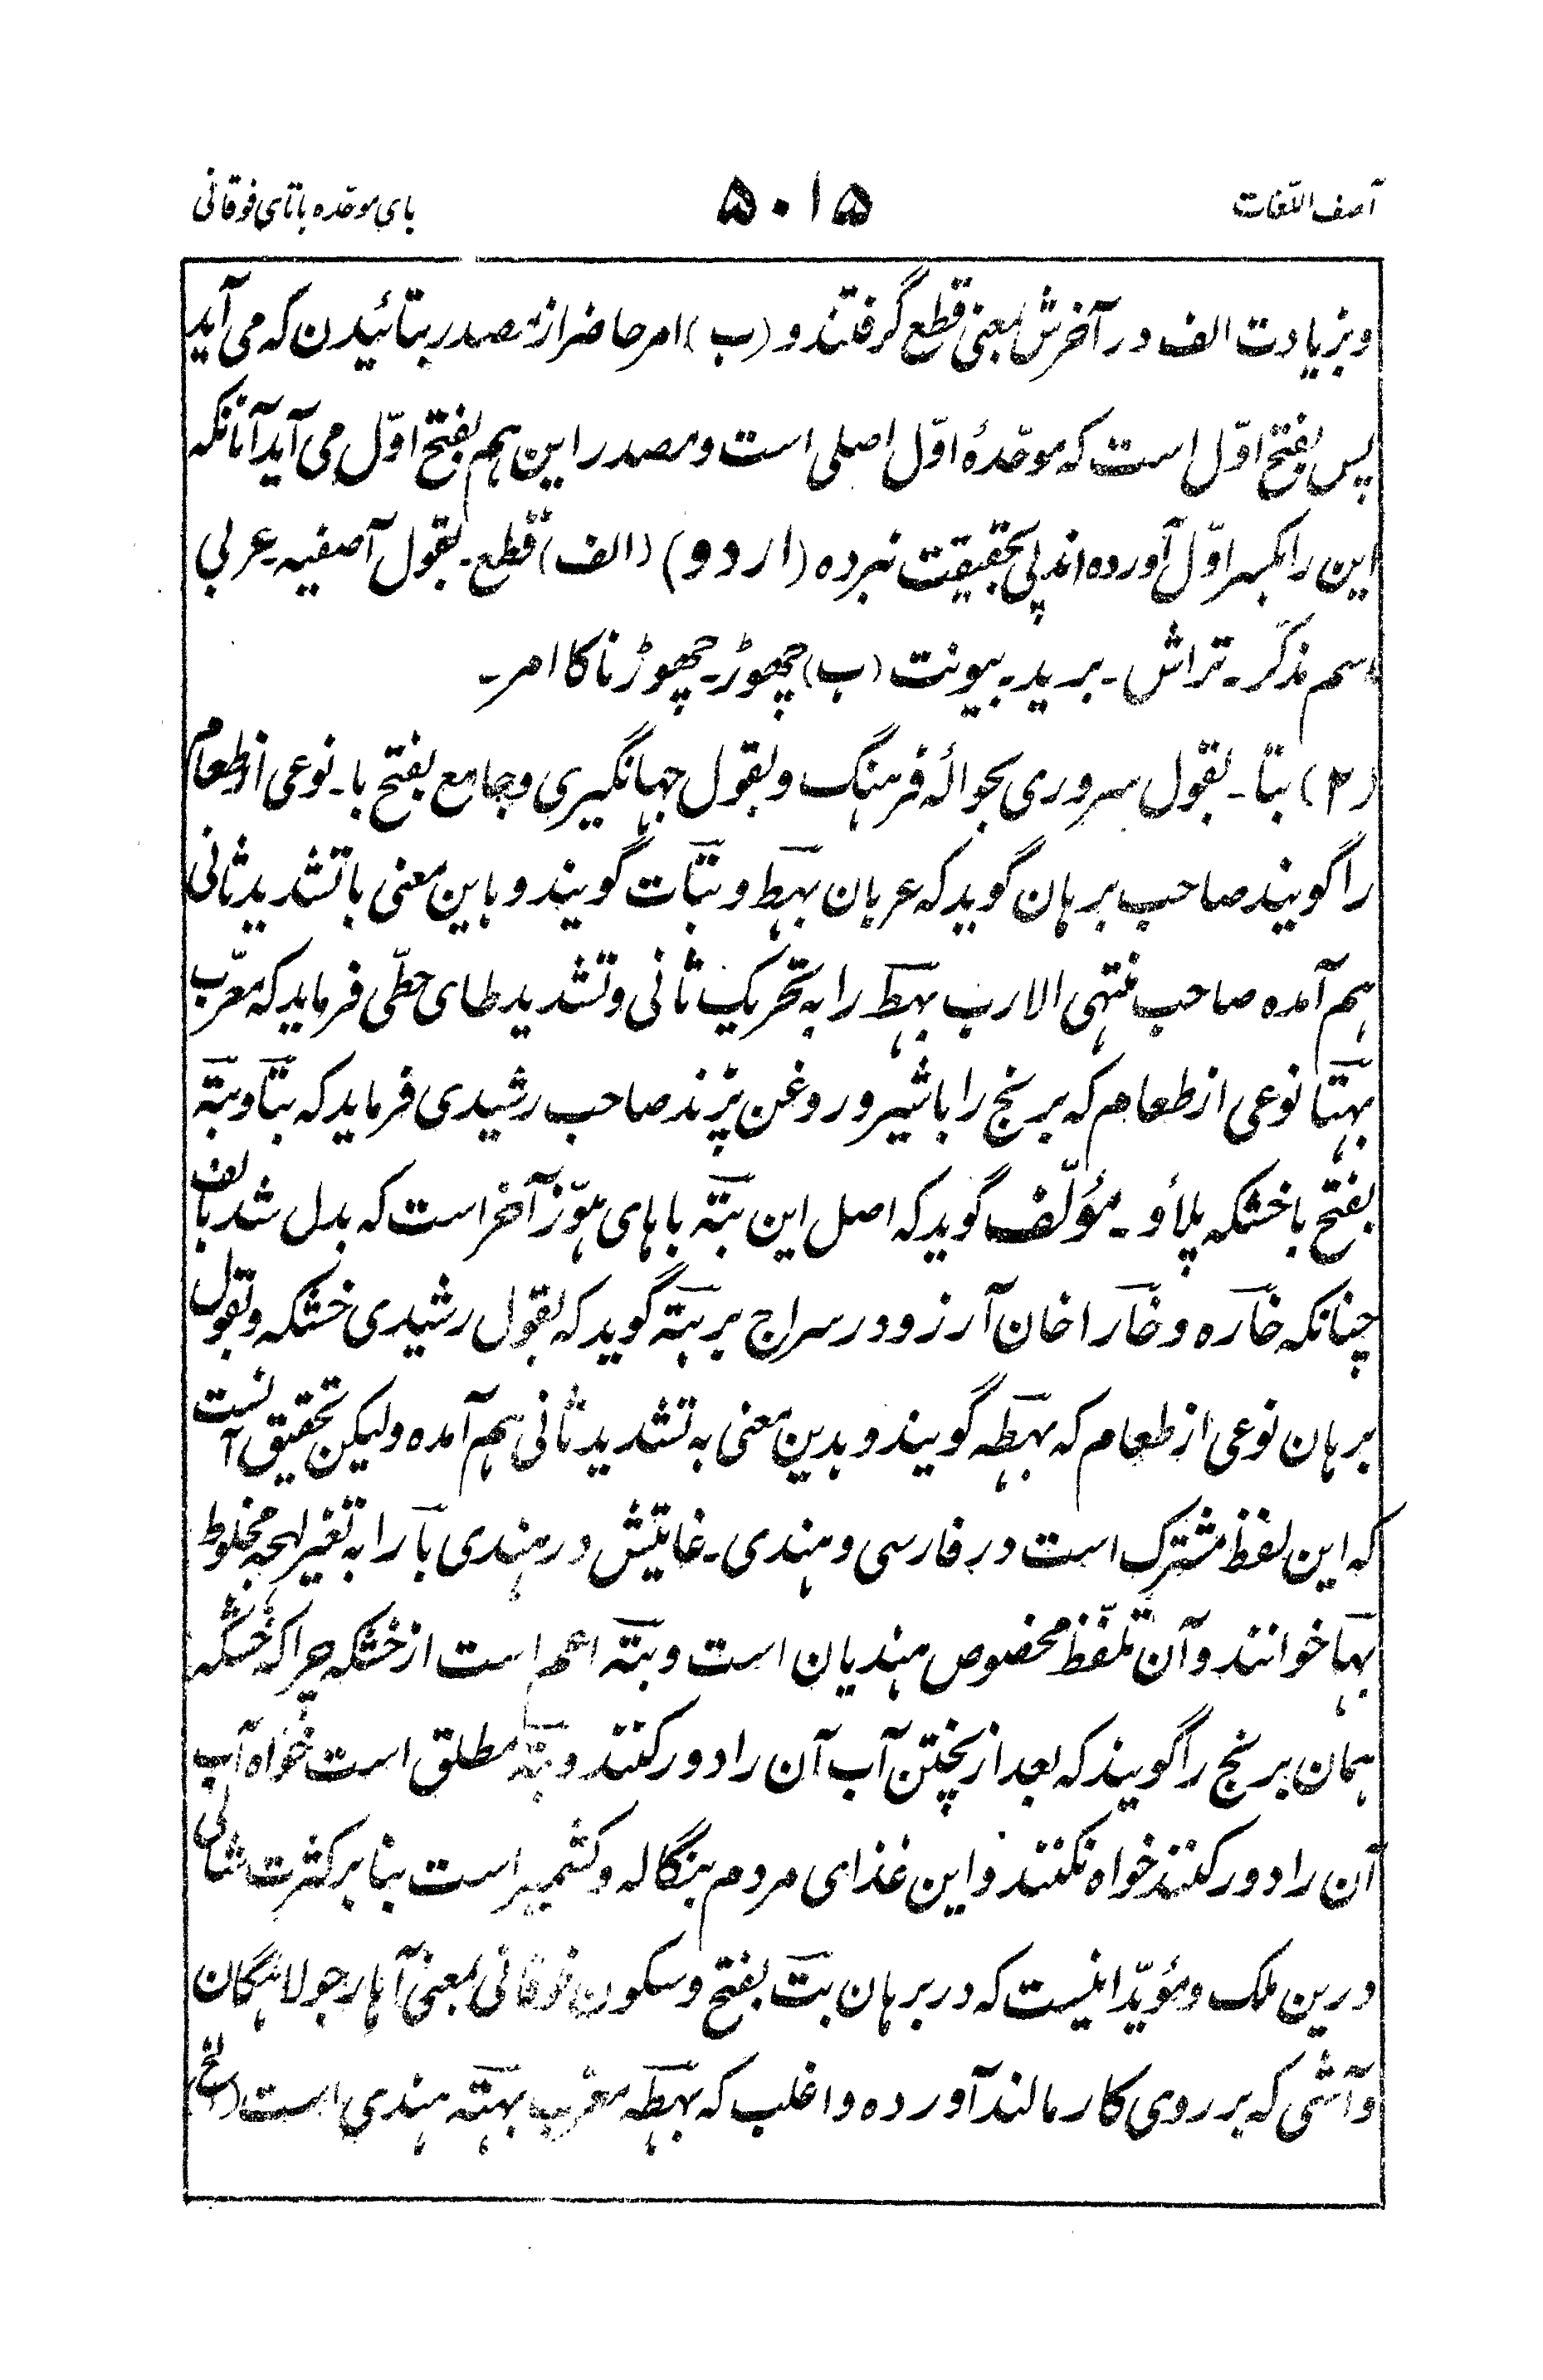 آصف اللّغات ۵۰۱۵ بای موحّده باتای فوقانی
وبزیادت الف در آخرش بمعنی قطع گرفتند و (ب) امر حاضر از مصدر بتائیدن که می آید
پس بفتح اوّل است که موحّدهٔ اوّل اصلی است ومصدر این هم بفتح اوّل می آید آنانکه
این را بکسر اوّل آورده اند پی بحقیقت نبرده (اردو) (الف) قطع ۔ بقول آصفیه ۔ عربی
اسم مذکّر ۔ تراش ۔ برید ۔ بیونت (ب) چھوڑ ۔ چھوڑنا کا امر ۔
(۲) بتا ۔ بقول سروری بحوالهٔ فرهنگ وبقول جهانگیری وجامع بفتح با ۔ نوعی از طعام
را گویند صاحب برهان گوید که عربان بهط و بتات گویند و باین معنی با تشدید ثانی
هم آمده صاحب منتهی الارب بهط را به تحریک ثانی و تشدید طای حطّی فرماید که معرّب
بهتا نوعی از طعام که برنج را با شیر و روغن پزند صاحب رشیدی فرماید که بتا وبته
بفتح با خشکه پلاؤ ۔ مؤلّف گوید که اصل این بته با های هوّز آخر است که بدل شد بالف
چنانکه خاره و خارا خان آرزو در سراج بر بته گوید که بقول رشیدی خشکه و بقول
برهان نوعی از طعام که بهطه گویند و بدین معنی به تشدید ثانی هم آمده ولیکن تحقیق آنست
که این لفظ مشترک است در فارسی و هندی ۔ غایتش در هندی با را به تغیر لهجه مخلوط
بها خوانند و آن تلفّظ مخصوص هندیان است و بته اعم است از خشکه چرا که خشکه
همان برنج را گویند که بعد از پختن آب آن را دور کنند و بته مطلق است خواه آب
آن را دور کنند خواه نکنند و این غذای مردم بنگاله و کشمیر است بنا بر کثرت شالی
درین ملک و مؤیّد اینست که در برهان بت بفتح و سکون فوقانی بمعنی آهار جولاهگان
و آشی که بر روی کار مالند آورده و اغلب که بهطه معرب بهته هندی است (الخ)